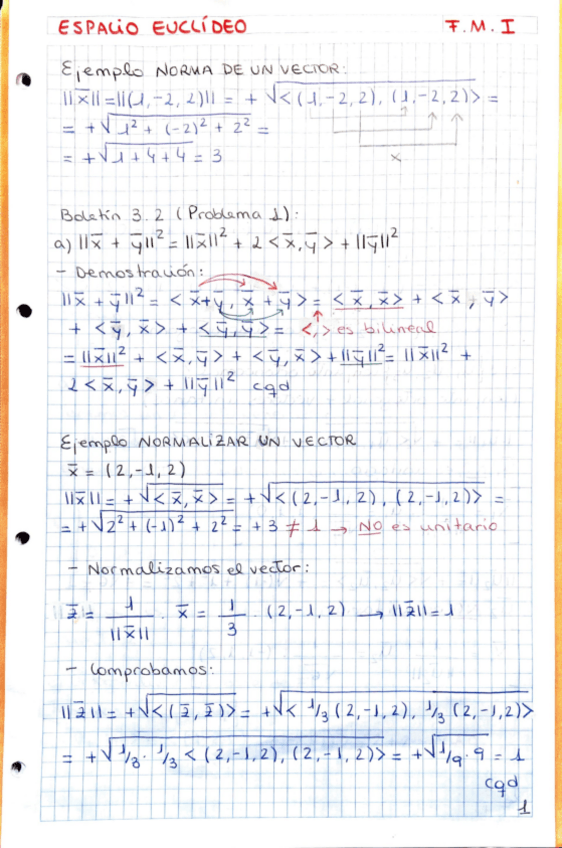 ESPACIO EUCLÍDEO F.M.I
Ejemplo NORMA DE UN VECTOR:
||x̄||=||(1,-2,2)|| = +√<(1,-2,2), (1,-2,2)> =
= +√1² + (-2)² + 2² =
= +√1+4+4 = 3
x
Boletín 3.2 (Problema 1):
a) ||x̄ + ȳ||² = ||x̄||² + 2 <x̄,ȳ> + ||ȳ||²
- Demostración:
||x̄ + ȳ||² = <x̄+ȳ, x̄+ȳ> = <x̄,x̄> + <x̄,ȳ>
+ <ȳ,x̄> + <ȳ,ȳ> = <,> es bilineal
= ||x̄||² + <x̄,ȳ> + <ȳ,x̄> + ||ȳ||² = ||x̄||² +
2<x̄,ȳ> + ||ȳ||² cqd
Ejemplo NORMALIZAR UN VECTOR
x̄ = (2,-1,2)
||x̄|| = +√<x̄,x̄> = +√<(2,-1,2), (2,-1,2)> =
= +√2² + (-1)² + 2² = +3 ≠ 1 → NO es unitario
- Normalizamos el vector:
z̄ = 1/||x̄|| · x̄ = 1/3 · (2,-1,2) → ||z̄|| = 1
- Comprobamos:
||z̄|| = +√<(z̄,z̄)> = +√<1/3 (2,-1,2), 1/3 (2,-1,2)>
= +√1/3 · 1/3 <(2,-1,2), (2,-1,2)> = +√1/9 · 9 = 1
cqd
1